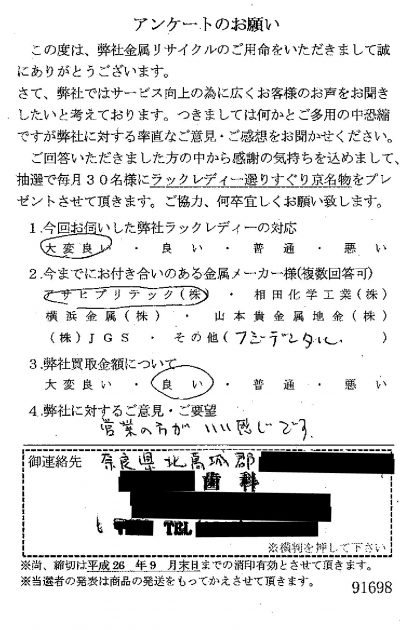 アンケートのお願い
この度は、弊社金属リサイクルのご用命をいただきまして誠
にありがとうございます。
さて、弊社ではサービス向上の為に広くお客様のお声をお聞き
したいと考えております。つきましては何かとご多用の中恐縮
ですが弊社に対する率直なご意見・ご感想をお聞かせください。
ご回答いただきました方の中から感謝の気持ちを込めまして、
抽選で毎月３０名様にラックレディー選りすぐり京名物をプレ
ゼントさせて頂きます。ご協力、何卒宜しくお願い致します。
1.今回お伺いした弊社ラックレディーの対応
大変良い ・ 良い ・ 普通 ・ 悪い
2.今までにお付き合いのある金属メーカー様(複数回答可)
アサヒプリテック(株) ・ 相田化学工業(株)
横浜金属(株) ・ 山本貴金属地金(株)
(株)JGS ・ その他(フジデンタル )
3.弊社買取金額について
大変良い ・ 良い ・ 普通 ・ 悪い
4.弊社に対するご意見・ご要望
営業の方がいい感じです。
御連絡先 奈良県北葛城郡
歯科
TEL
※横判を押して下さい
※尚、締切は平成26 年9 月末日までの消印有効とさせて頂きます。
※当選者の発表は商品の発送をもってかえさせて頂きます。
91698